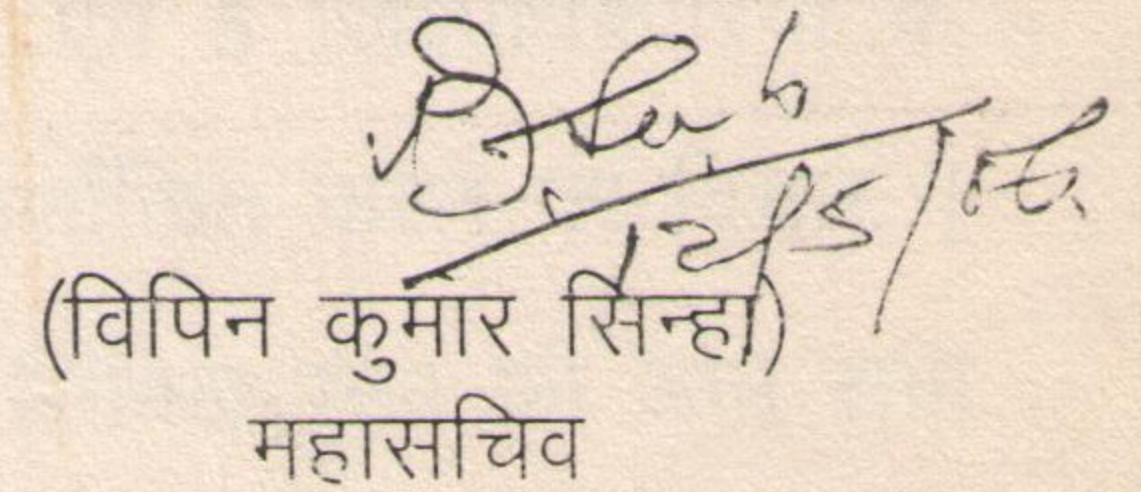 12/5/
(विपिन कुमार सिन्हा)
महासचिव